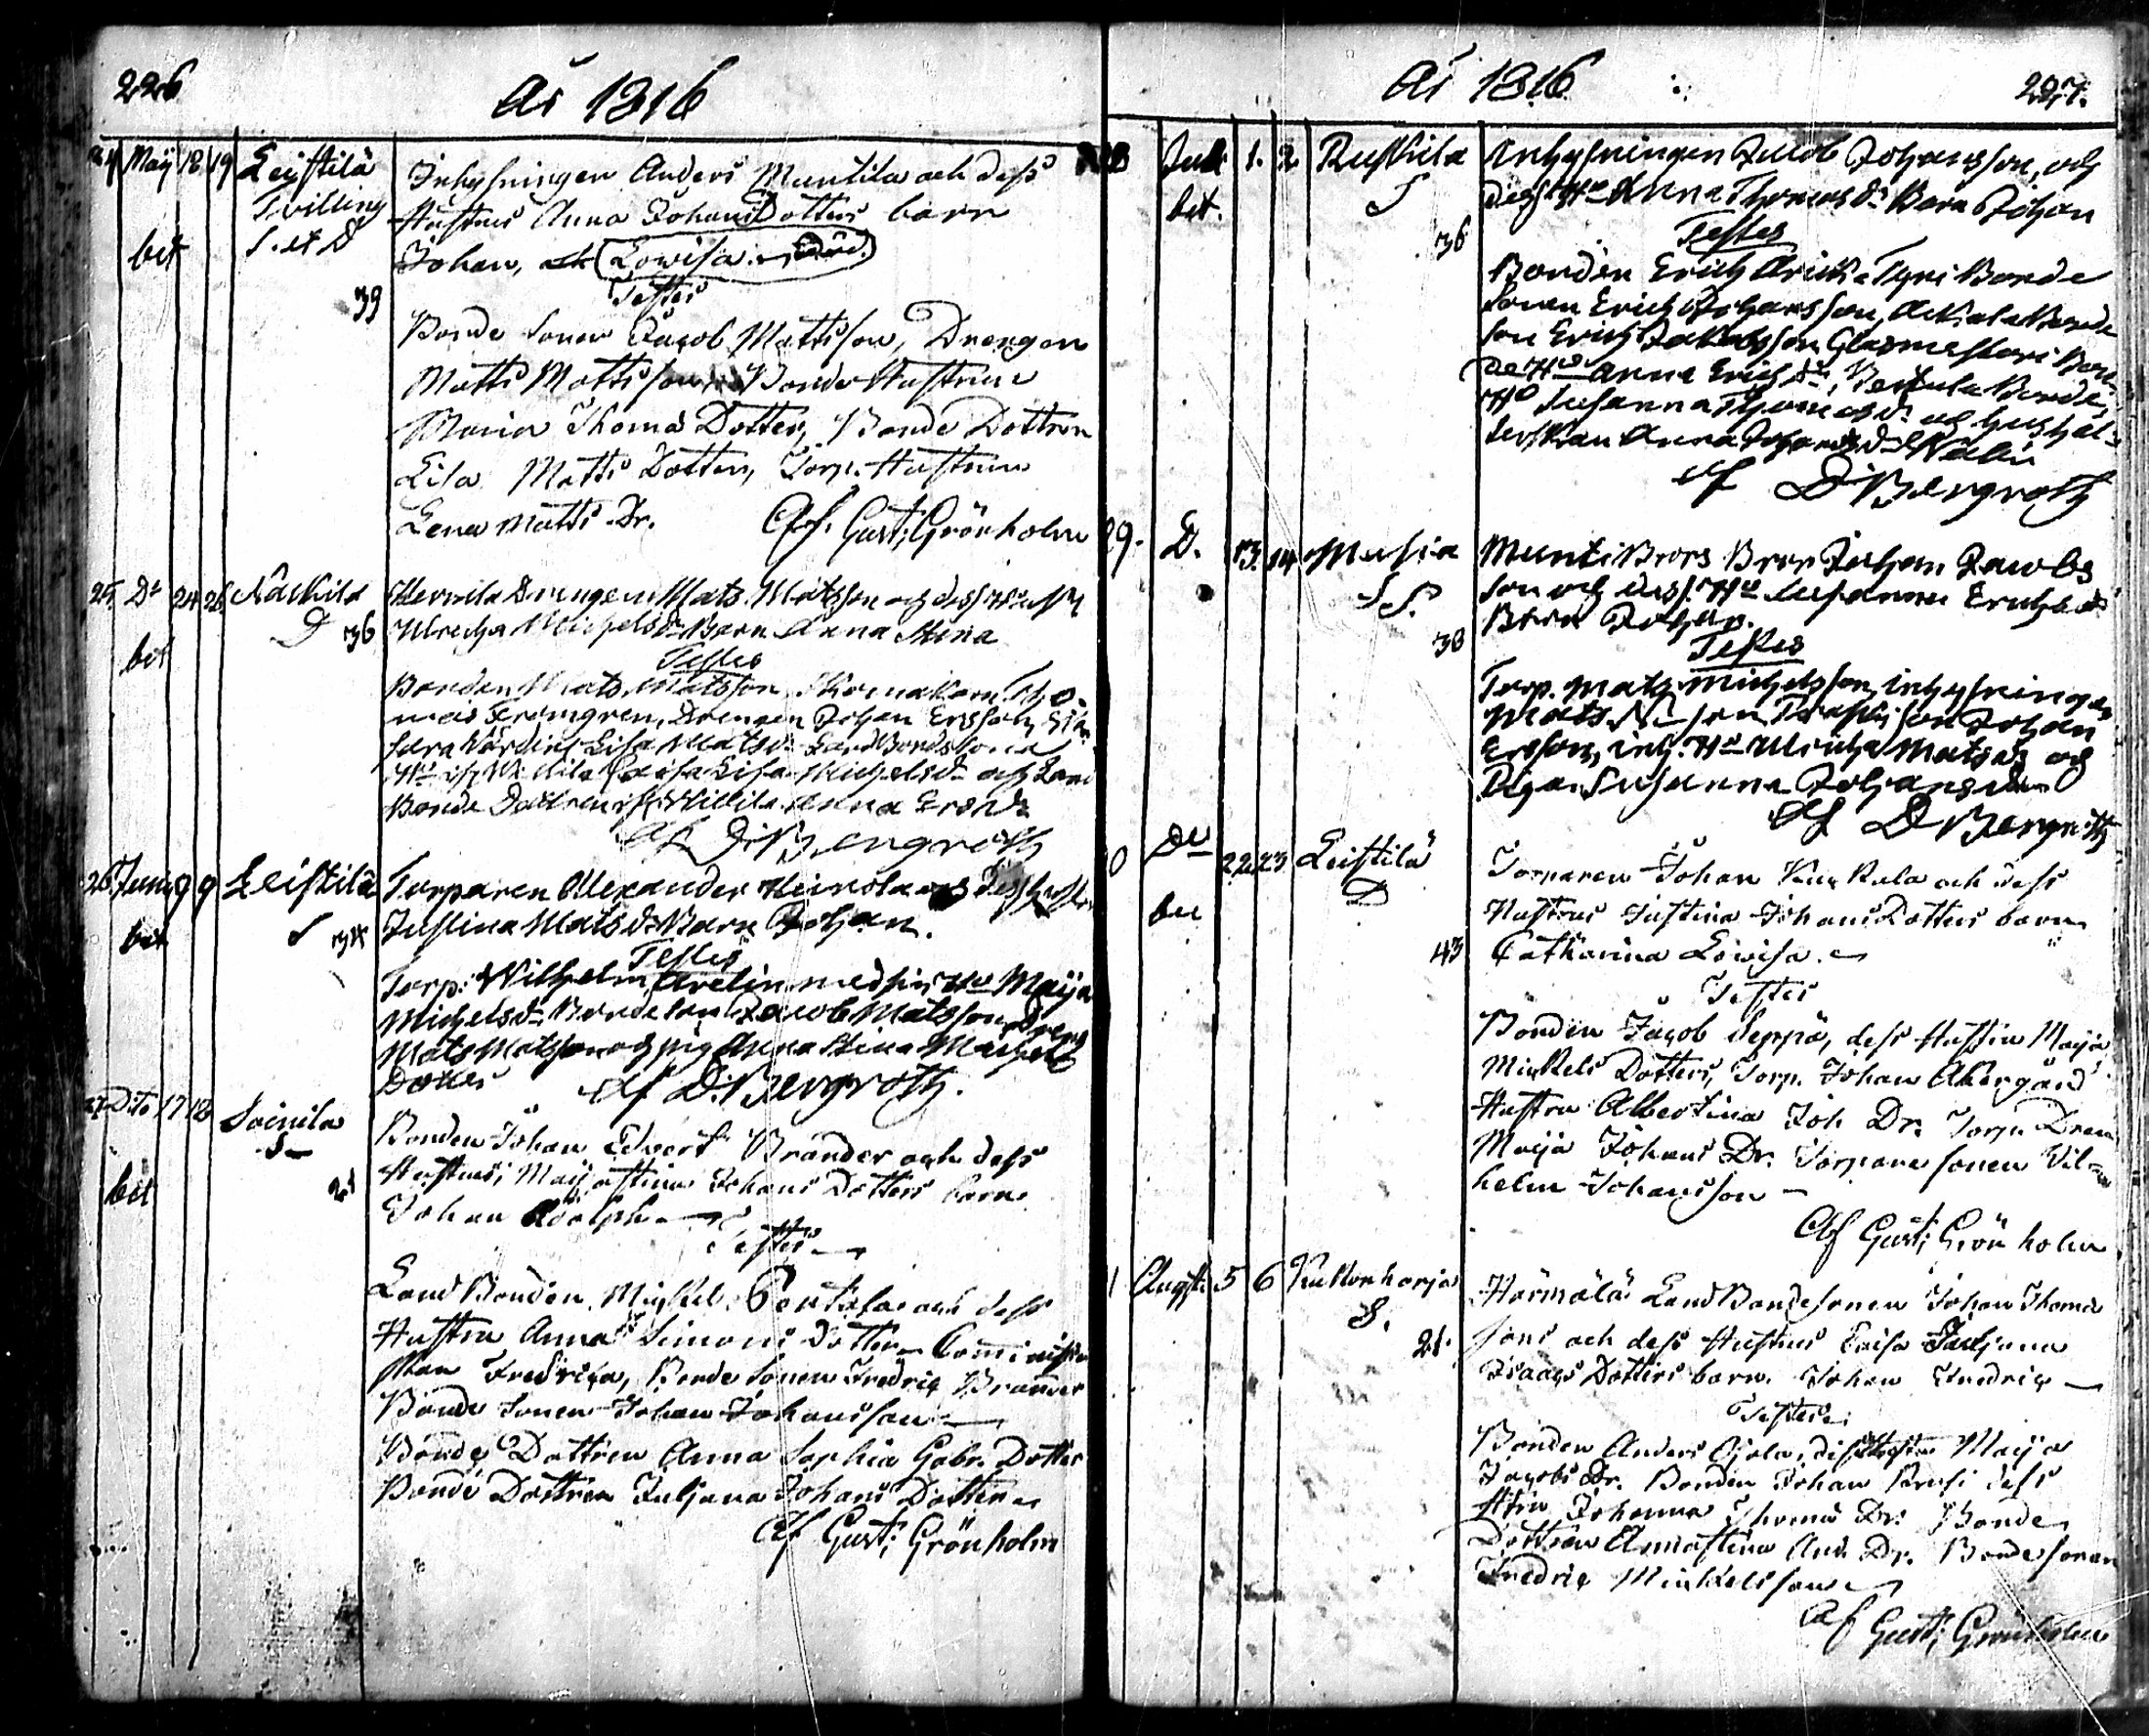 226
År 1816
24 Maij 18 19 Leistilä
Tvilling
S. et D
bet
39
Inhysningen Anders Muntila och dess
Hustrus Anna Johans Dotters barn
Johan, och Lowisa. död.
Testes
Bonde Sonen Jacob Mattsson, Drengen
Matts Mattsson Bonde Hustrun
Maria Thomas Dotter, Bonde Dottren
Lisa Matts Dotter, Torp. Hustrun
Lena Matts Dr.
Af. Gust: Grönholm
25 Do 24 26
D 36
bet
Drengen Mats Matsson och dess Hu
Ulricha Michelsdr Barn Anna Stina
Testes
Bonden Mats Matsson, Skomakaren Tho-
mas Drengen Johan Ersson,
Lisa Matsdr
Lisa Michelsdr och Land
Bonde Dottren Anna Ersdr
Af D: Bergroth
26 Juni 9 9 Leistilä
bet
S 34
Torparen Alexander Heinola och dess Hustru
Justina Matsdr Barn Johan.
Testes
Torp: Wilhelm Arelin med sin Hu Maija
Michelsdr. Bonde Son Jacob Matsson Dreng
Mats Matsson och pig Anna Stina Michels
Dotter
Af D: Bergroth.
27 Dito 17 18 Soinila
S
bet
21
Bonden Johan Edvert Brander och dess
Hustrus, Maijastina Johans Dotters barn
Johan Adolph
Testes
Land Bonden Michel Penttila och dess
Hustru Anna Simons Dotter
Fredrica, Bonde Sonen Fredric Brander
Bonde Sonen Johan Johansson
Bonde Dottren Anna Sophia Gabr. Dotter
Bonde Dottren Juljana Johans Dotter
Af Gust: Grönholm
År 1816
227.
Juli 1. 2 Ruskila
bet.
S
36
Inhysningen Jacob Johansson, och
dess Hu Anna Thomasdr Barn Johan
Testes
Bonden Erich Tyni Bonde
Sonen Erich Johansson, Bonde
Son Erich Jakobsson Bon-
de Hu Anna Erichsdr, Bonde
Hu Susanna Thomasdr och
Anna Johansdr
Af D Bergroth
29. D. 13. 14 Musia
S.
38
Munti Brors Bror Johan Jacobs
son och dess Hu Susanna Erichsdr
Barn Johan.
Testes
Torp. Mats Michelsson, inhysningen
Mats Johan
Ersson, inh. Hu Ulricha Matsdr och
Pigan Susanna Johansdr
Af D Bergroth
Do 22 23 Leistilä
D
bet
43
Torparen Johan Kuckula och dess
Hustrus Justina Johans Dotters barn
Catharina Lowisa.
Testes
Bonden Jacob Seppä, dess Hustru Maija
Mickels Dotter, Torp. Johan Åkergård
Hustru Albertina Joh Dr. Torp. Dren
Maija Johans Dr. Torpare Sonen Vil-
helm Johansson
Af Gust: Grönholm
Augsti 5 6 Kuttonharja
S.
21.
Härmälä Land Bonde Sonen Johan Thomas
sons och dess Hustrus Caisa Juljana
Isaacs Dotters barn. Johan Fredric
Testes
Bonden Anders Ojala, dess Hustru Maija
Jacobs Dr. Bonden Johan dess
Hstru Johanna Thomas Dr. Bonde
Dottren Annastina And. Dr. Bonde Sonen
Fredric Mickelsson
Af Gust: Grönholm